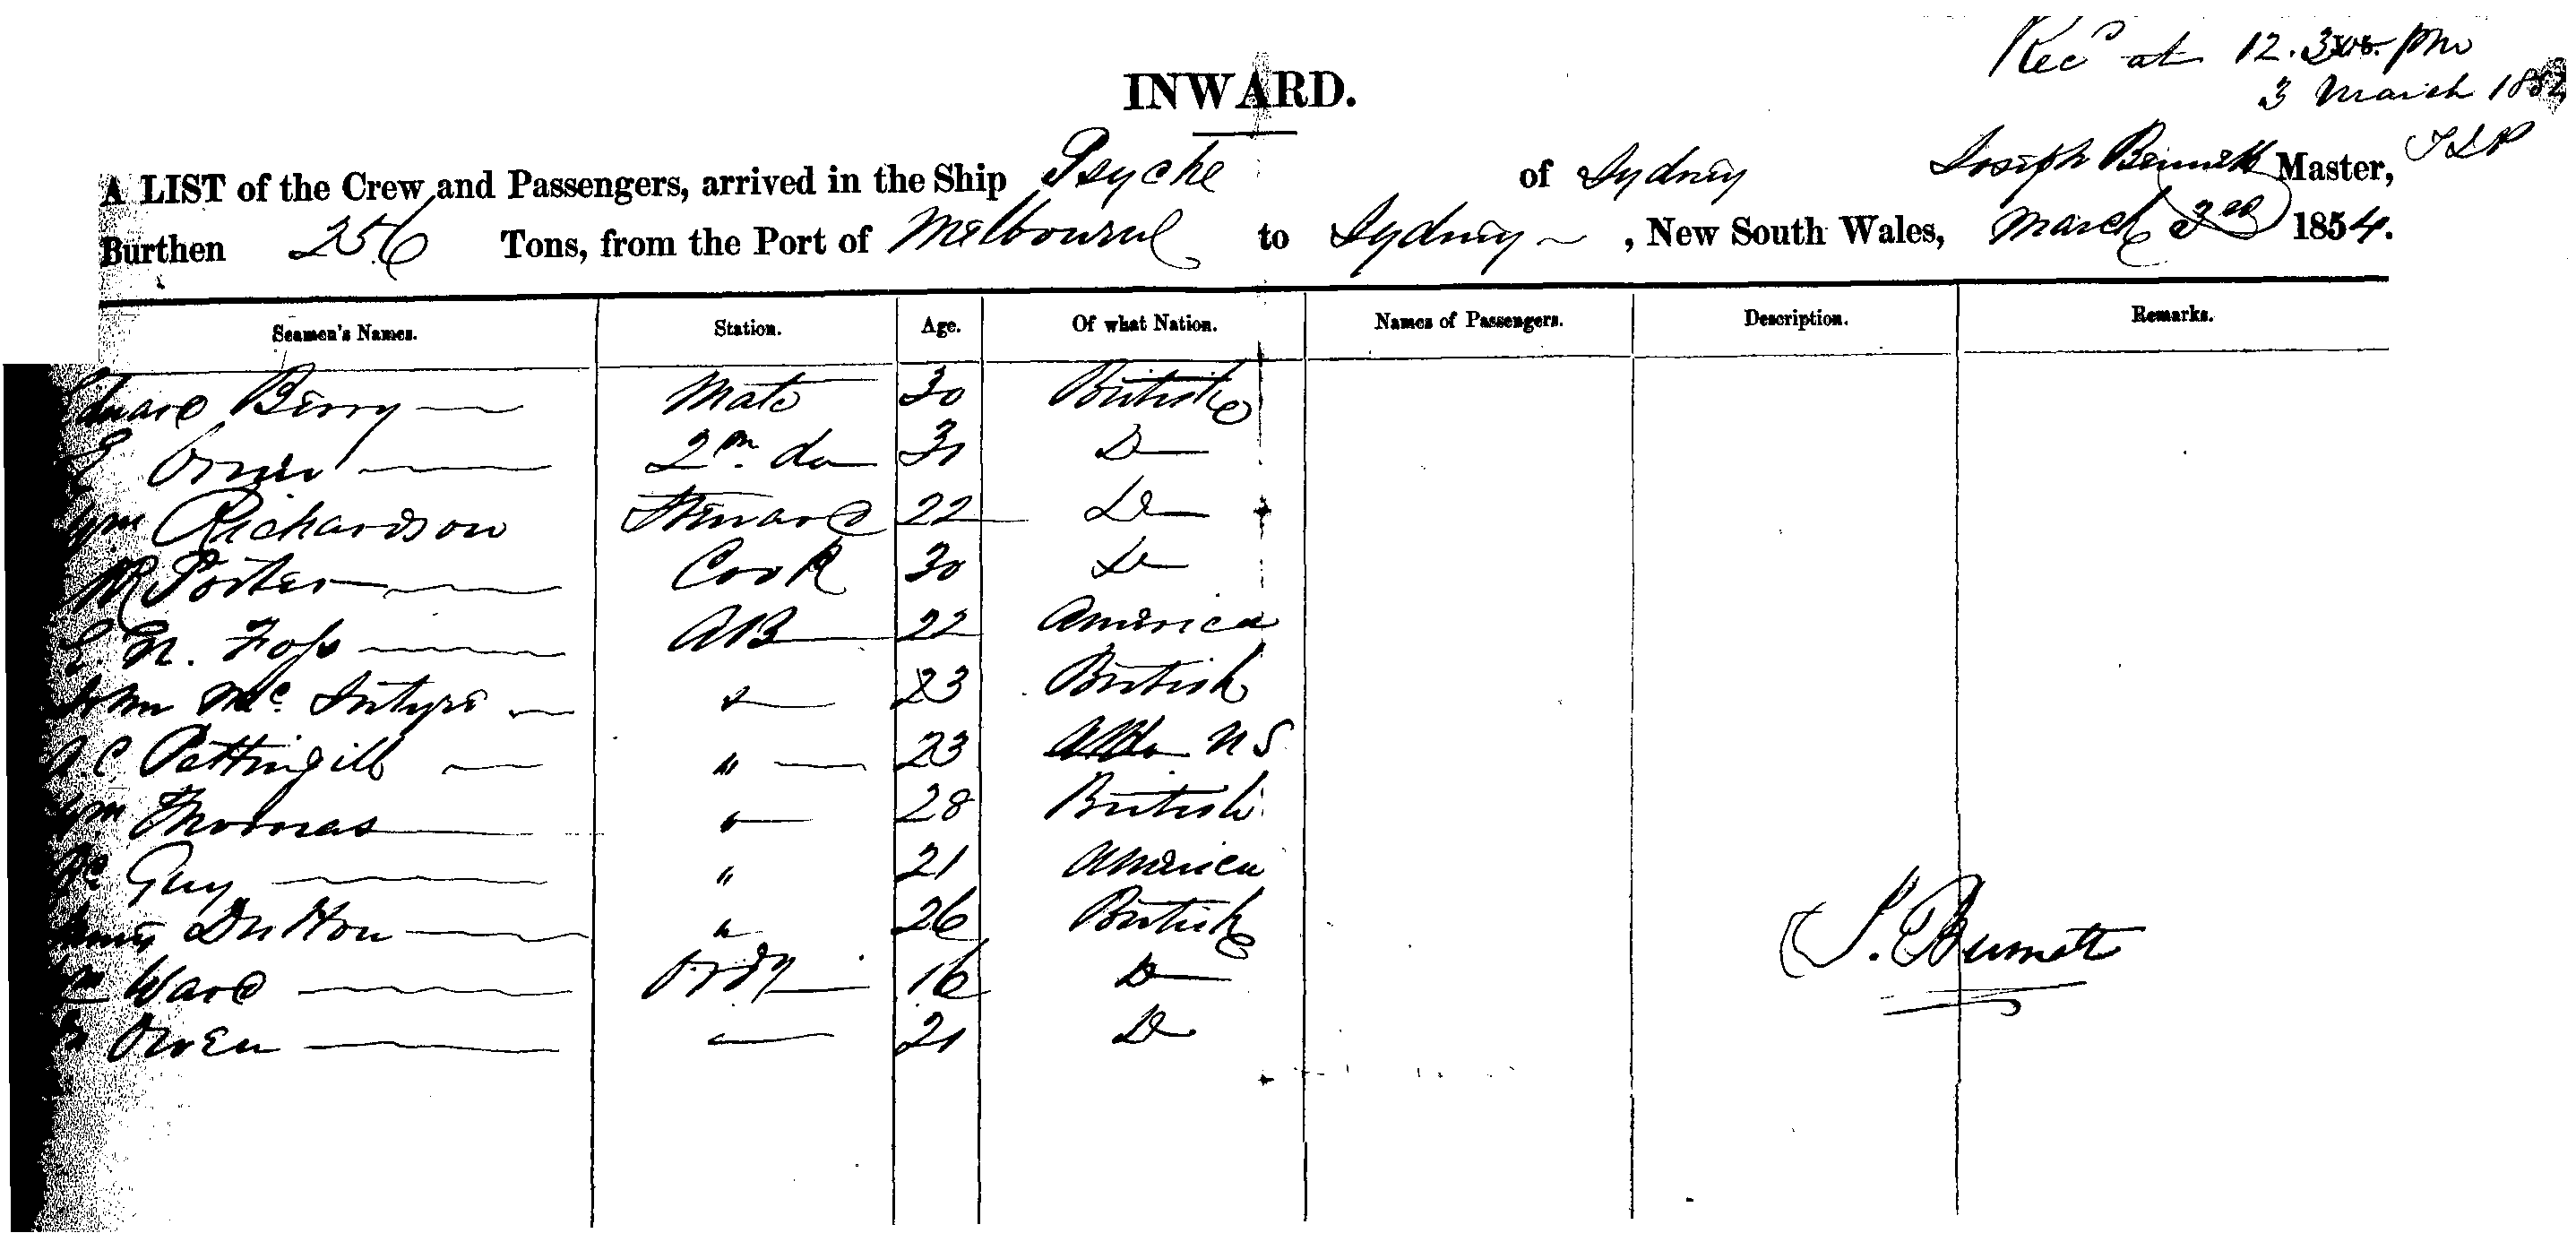 Recd at 12. pm
3 March 185
INWARD.
A LIST of the Crew and Passengers, arrived in the Ship Psyche of Sydney Joseph Bennett Master,
Burthen 256 Tons, from the Port of Melbourne to Sydney, New South Wales, March 1854.
Seamen's Names. Station. Age. Of what Nation. Names of Passengers. Description. Remarks.
Berry Mate 30 British
2nd do 31 Do
Wm Richardson Steward 22 Do
Porter Cook 30 Do
E. N. Foss AB 22 America
John McIntyre 23 British
A. C. Pettingill " 23 N S
Wm Thomas 28 British
Guy " 21 America
Henry Dutton " 26 British
Ward Ordy 16 Do
Owen 21 Do
J. Bennett